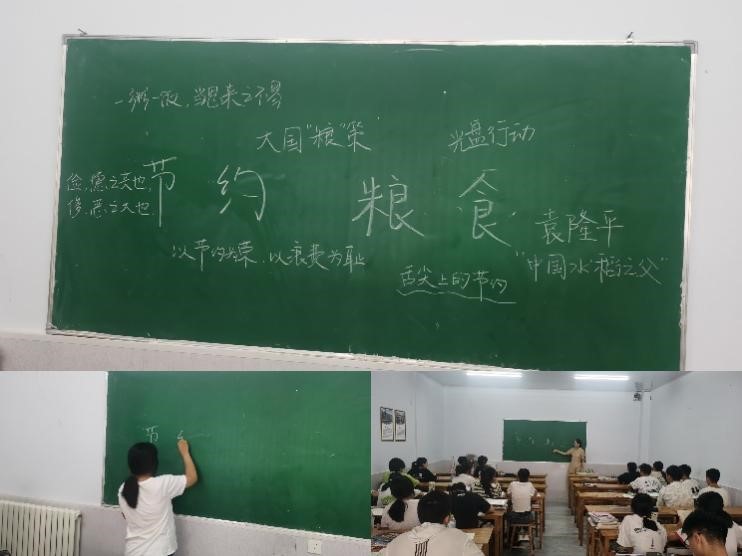 一粥一饭,当思来之不易
大国"粮"策
光盘行动
俭,德之共也,
侈,恶之大也,
节约 粮食
袁隆平
"中国水稻之父"
以节约为荣,以浪费为耻
舌尖上的节约
节